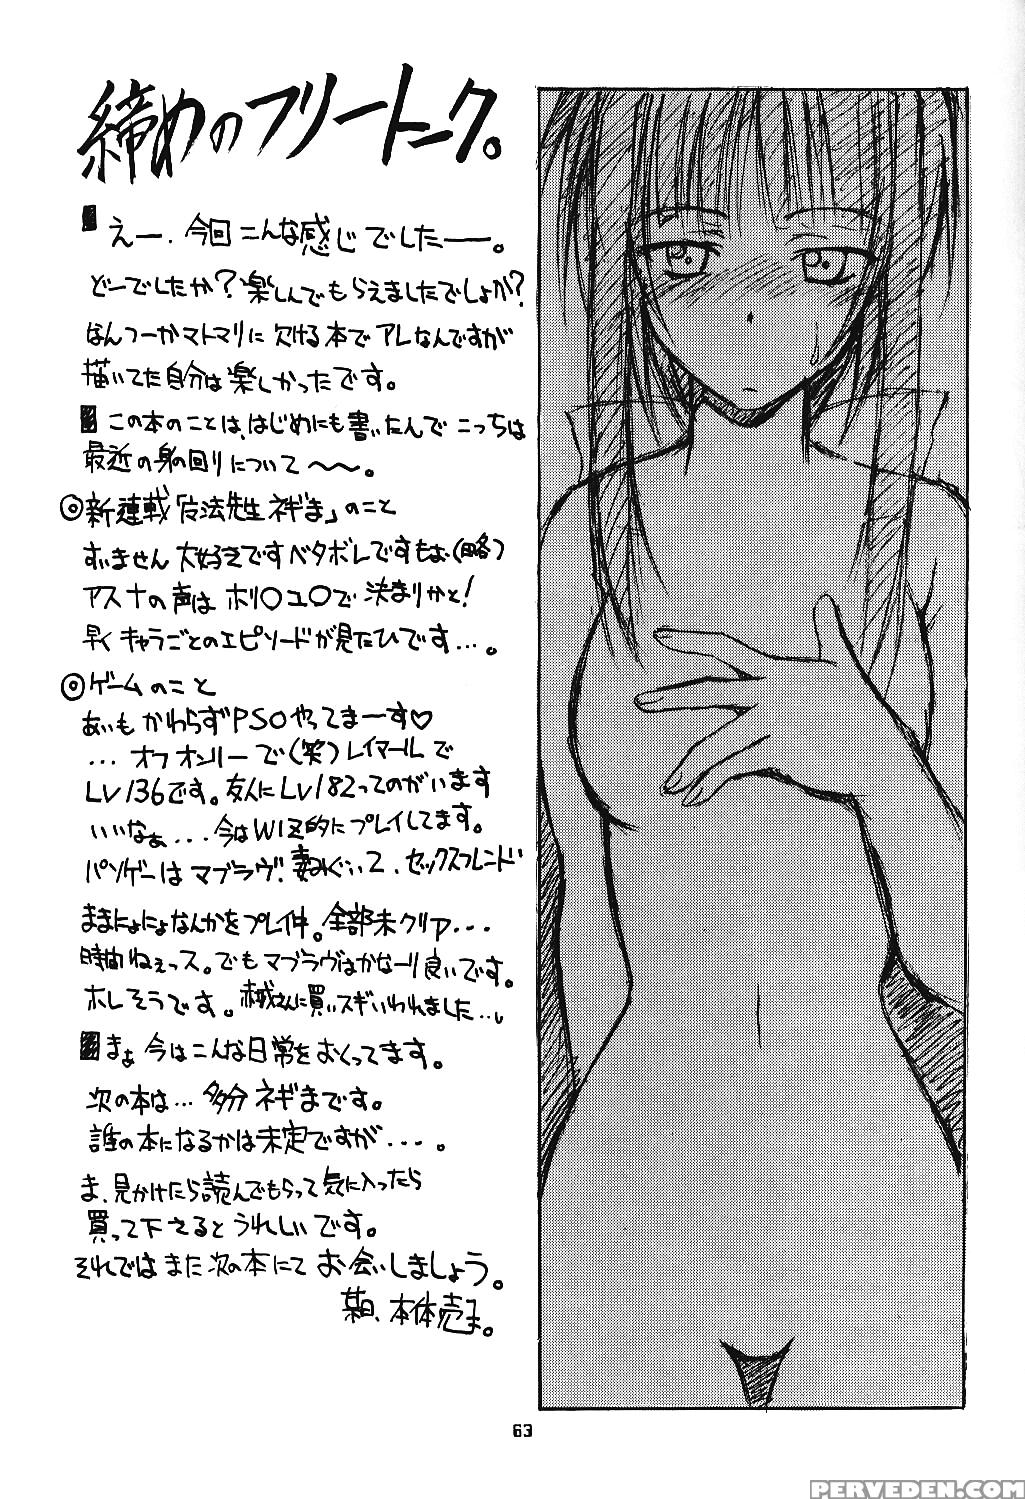 締めのフリートーク。
えー、今回こんな感じでしたー。
どーでしたか?楽しんでもらえましたでしょか?
なんつーかマトマリに欠ける本でアレなんですが
描いてた自分は楽しかったです。
この本のことは、はじめにも書いたんでこっちは
最近の身の回りについて〜〜。
◎新連載「魔法先生ネギま」のこと
すいません大好きですベタボレですもぉ、(略)
アスナの声はホリ○ユ○で決まりかと!
早くキャラごとのエピソードが見たひです…。
◎ゲームのこと
あいもかわらずPSOやってまーす♡
…オフオンリーで(笑)レイマールで
LV136です。友人にLV182ってのがいます
いいなぁ...今はWIZ的にプレイしてます。
パソゲーはマブラヴ、妻みぐい2、セックスフレンド
ままにょにょなんかをプレイ中。全部未クリア...
時間ねぇっス。でもマブラヴはかなーり良いです。
ホレそうです。さんに買いスギいわれました…。
まぁ今はこんな日常をおくってます。
次の本は…多分ネギまです。
誰の本になるかは未定ですが...。
ま、見かけたら読んでもらって気に入ったら
買って下さるとうれしいです。
それではまた次の本にてお会いしましょう。
某日、本体売ま。
63
PERVEDEN.COM